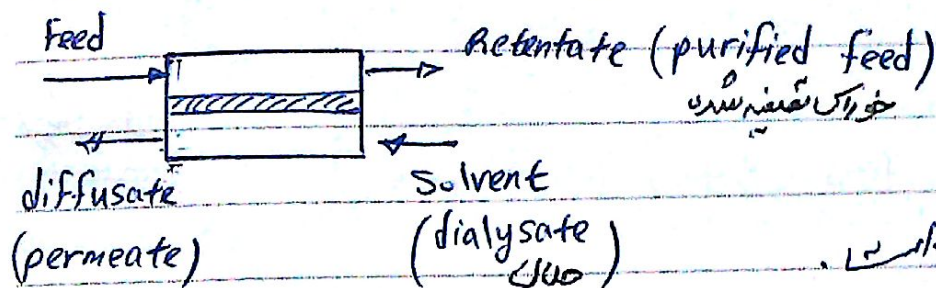 Feed
Retentate (purified feed)
خوراک تصفیه شده
diffusate
Solvent
(permeate)
(dialysate)
حلال